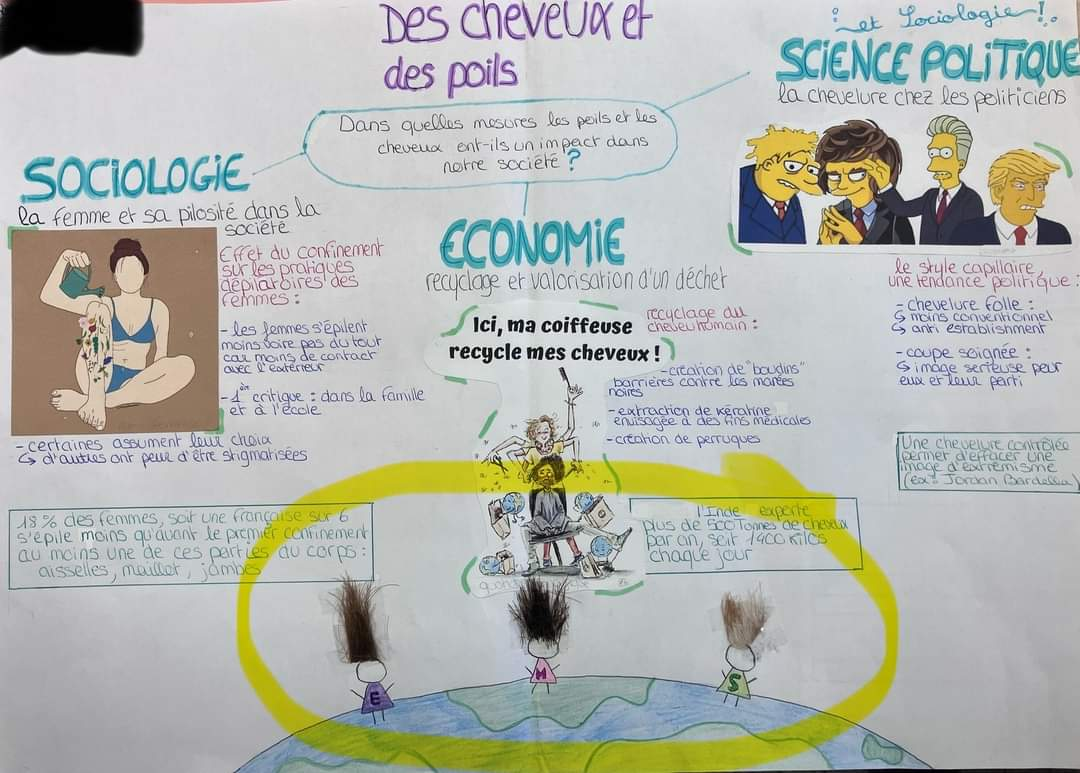 Des cheveux et
des poils
et Sociologie !
SCIENCE POLITIQUE
la chevelure chez les politiciens
Dans quelles mesures les poils et les
cheveux ont-ils un impact dans
notre société ?
SOCIOLOGIE
la femme et sa pilosité dans la
société
Effet du confinement
sur les pratiques
dépilatoires des
femmes :
- les femmes s'épilent
moins voire pas du tout
car moins de contact
avec l'extérieur
- 1ère critique : dans la famille
et à l'école
- certaines assument leur choix
↳ d'autres ont peur d'être stigmatisées
18% des femmes, soit une française sur 6
s'épile moins qu'avant le premier confinement
au moins une de ces parties du corps :
aisselles, maillot, jambes
ECONOMIE
recyclage et valorisation d'un déchet
Ici, ma coiffeuse
recycle mes cheveux !
recyclage du
cheveu humain :
- création de "boudins"
barrières contre les marées
noires
- extraction de kératine
envisagée à des fins médicales
- création de perruques
l'Inde experte
plus de 500 Tonnes de cheveux
par an, soit 1400 kilos
chaque jour
le style capillaire
une tendance politique :
- chevelure folle :
↳ moins conventionnel
↳ anti establishment
- coupe soignée :
↳ image sérieuse pour
eux et leur parti
Une chevelure contrôlée
permet d'effacer une
image d'extrémisme
(ex : Jordan Bardella)
E
M
S